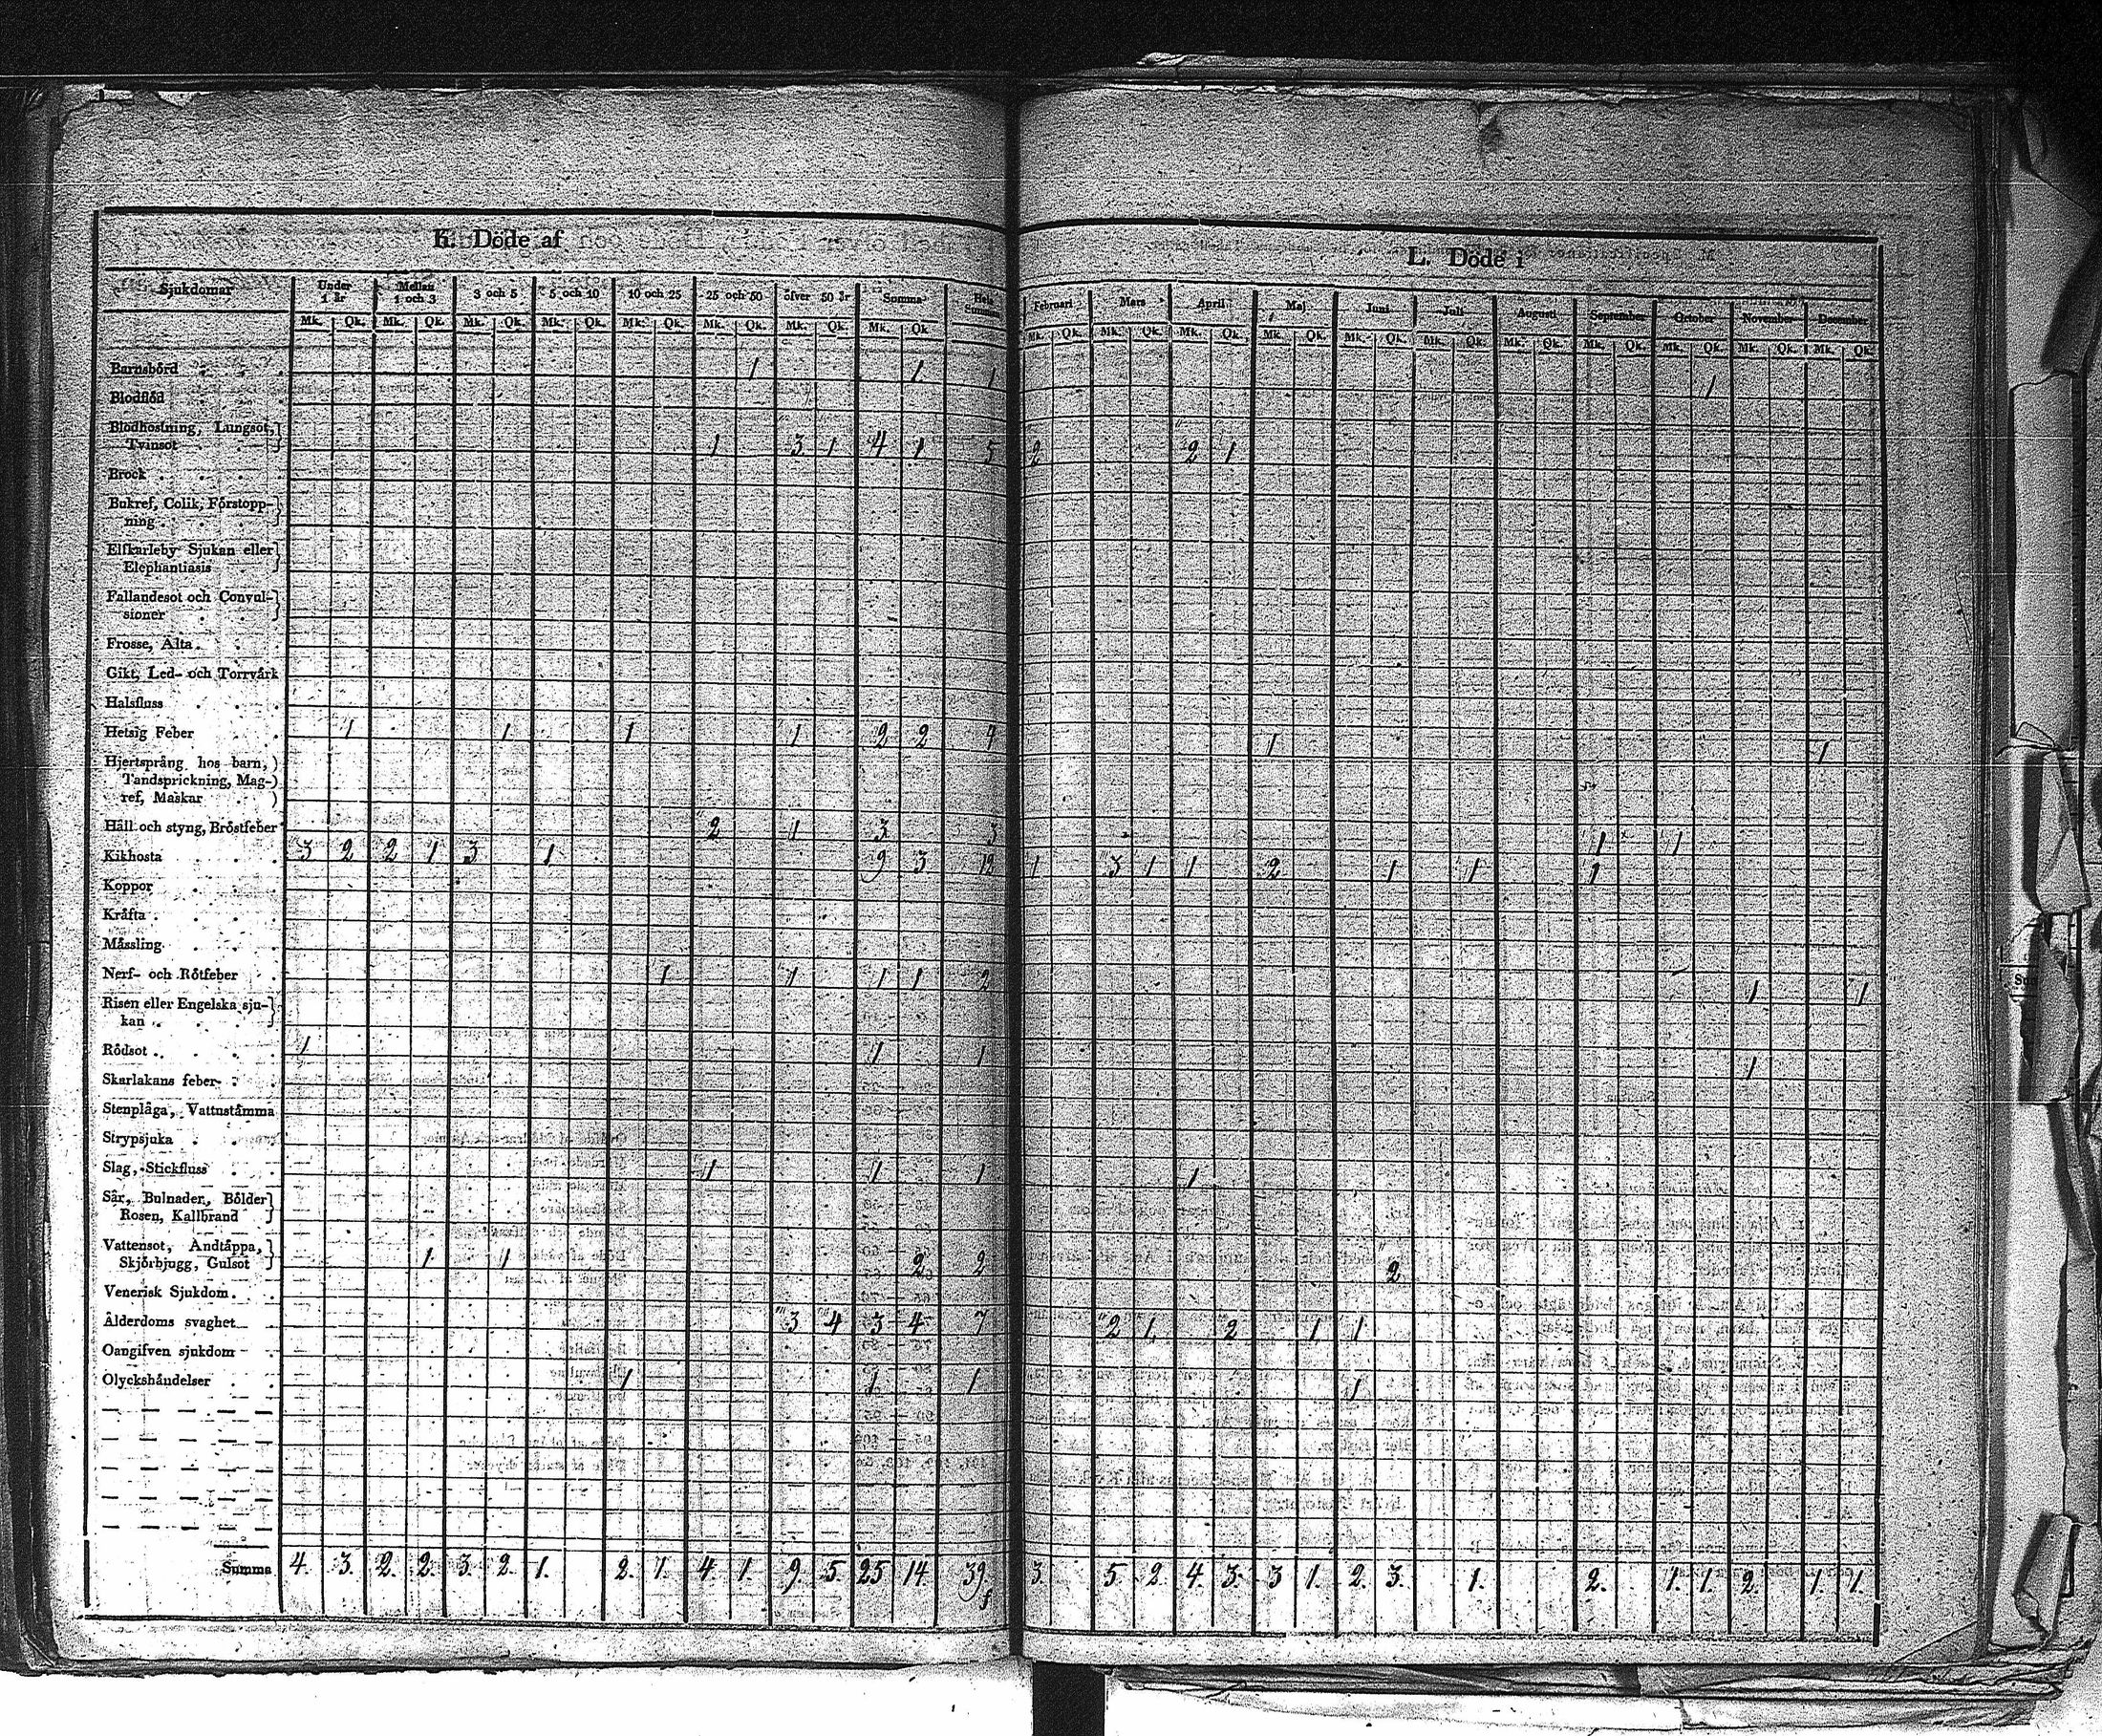 K. Döde af
L. Döde i
Sjukdomar Under 1 år Mellan 1 och 3 3 och 5 5 och 10 10 och 25 25 och 50 öfver 50 år Summa Hela Summan Februari Mars April Maj Juni Juli Augusti September October November December
Mk. Qk. Mk. Qk. Mk. Qk. Mk. Qk. Mk. Qk. Mk. Qk. Mk. Qk. Mk. Qk Mk. Qk. Mk. Qk. Mk. Qk. Mk. Qk. Mk. Qk. Mk. Qk. Mk. Qk. Mk. Qk. Mk. Qk. Mk. Qk. Mk. Qk.
Barnsbörd 1 1 1 1
Blodflöd
Blodhostning, Lungsot,
Tvinsot 1 3 1 4 1 5 2 2 1
Brock
Bukref, Colik, Förstopp-
ning
Elfkarleby Sjukan eller
Elephantiasis
Fallandesot och Convul-
sioner
Frosse, Älta
Gikt, Led- och Torrvärk
Halsfluss
Hetsig Feber 1 1 1 1 2 2 4 1 1
Hjertsprång hos barn,
Tandsprickning, Mag-
ref, Maskar
Håll och styng, Bröstfeber 2 1 3 3 1 1
Kikhosta 3 2 2 1 3 1 9 3 12 1 3 1 1 2 1 1 1
Koppor
Kräfta
Mässling
Nerf- och Rötfeber 1 1 1 1 2 1 1
Risen eller Engelska sju-
kan
Rödsot 1 1 1 1
Skarlakans feber
Stenplåga, Vattnstämma
Strypsjuka
Slag, Stickfluss 1 1 1 1
Sår, Bulnader, Bölder
Rosen, Kallbrand
Vattensot, Andtäppa,
Skjörbjugg, Gulsot 1 1 2 2 2
Venerisk Sjukdom
Ålderdoms svaghet 3 4 3 4 7 2 1 2 1 1
Oangifven sjukdom
Olyckshändelser 1 1 1 1
Summa 4. 3. 2. 2. 3. 2. 1. 2. 1. 4. 1. 9. 5. 25 14. 39 3. 5. 2. 4. 3. 3 1. 2. 3. 1. 2. 1. 1. 2. 1. 1.